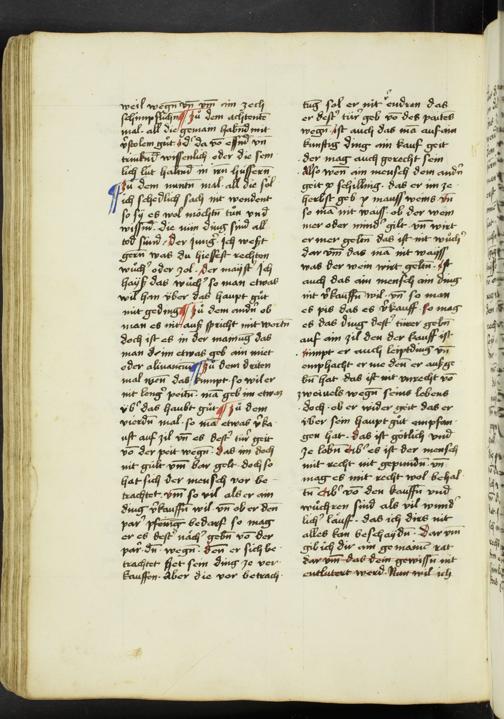 weil wegn vn vm im zech
schimpflichn Zu dem achtenn
mal all die gemain habnd mit
vstolem gut od da vo essn vn
trinknd wissenlich oder die sem
lich lut haltnd in irn hussern
Zu dem nuntn mal all die sol
ich schedlich sach nit wendent
so sy es wol mochtn tun vnd
wissnd die nun ding sind all
tod sund Der jung Ich west
gern was du hiessest rechten
wuch oder zol der maist Ich
haiss das wuch so man etwas
wil han vber das haupt gut
mit geding Zu dem andn ob
man es nit auss spricht mit wortn
doch ist es in der mainug das
man dorim etwas geb ain miet
oder Zu dem dritten
mal wen das kumpt so wil er
nit leng peitn man geb im etwas
vb das haubt gut Zu dem
vierdn mal so ma etwas vka
uft auf zil vn es dest tur geit
vo der peit wegn das im doch
nit gult vm bar gelt doch so
hat sich der mensch vor be
trachtet vm so vil als er am
ding vkauffn wil vn ob er den
par pfenig bedarf so mag
er es dest nach gebn vo der
par dn wegn Den er sich be
trachtet het sein ding ze ver
kauffen Aber die vor betrach
tug sol er nit endren das
er dest tur geb vo des paites
wegn ist auch das ma auf ain
kunftig ding ain kauf geit
der mag auch gerecht sein
Also wen ain mensch dem andn
geit x schilling das er im ze
herbst geb y mauss weins vn
so ma nit waiss ob der wein
mer oder mind gilt vn wirt
er mer geltn das ist nit wuch
dar vm das ma nit waiss
was der wein wirt geltn ist
auch das ain mensch ain ding
nit vkauffn wil vn so man
es pis das es vkauff so mag
es das ding dest turer gebn
auf ain zil den der kauff ist
nimpt er auch leiptding vn
emphacht er me den er aussge
bn hat das ist nit unrecht vo
zweivels wegn seins lebens
doch ob er wider geit das er
vber sein haupt gut empfan
gen hat das ist gotlich vnd
ze lobn Aber es ist der mensch
mit recht nit gepundn vn
mag es mit recht wol behal
tn Aber vo den kauffn vnd
wuchren sind als vil wund
lich leuff das ich dirs nit
alles kan beschaydn Dar vm
gib ich dir ain gemainn rat
dar vm das dem gewissn nit
entlutert werd Nun wil ich